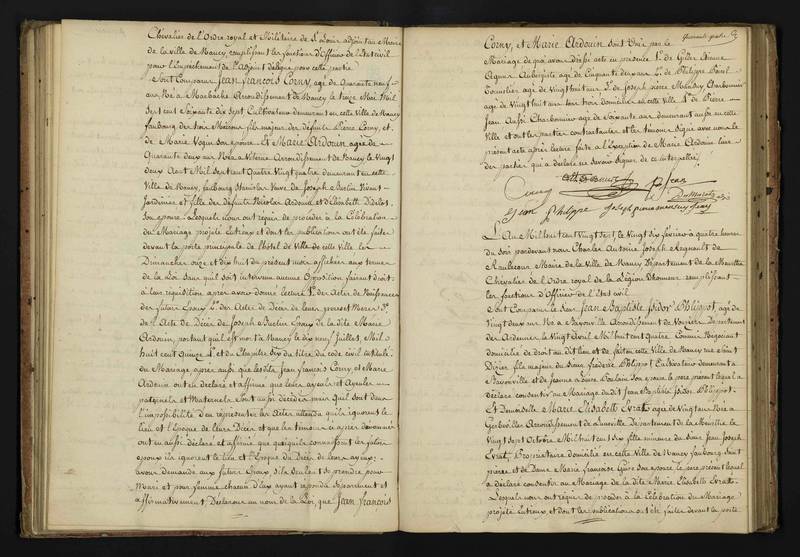 Chevalier de l'Ordre royal et Militaire de St Louis adjoint au Maire
de la ville de Nancy remplissant les fonctions d'Officier de l'Etat civil
pour l'Empêchement de l'adjoint délégué pour cette partie
Sont Comparus Jean François Corny, agé de Quarante neuf
ans Né à Marbache Arrondissement de Nancy le treize Mai Mil
Sept cent Soixante dix Sept Cultivateur demeurant en cette Ville de Nancy
faubourg des trois Maisons fils majeur des défunts Pierre Corny, et
de Marie Voguin Son epouse. Et Marie Ardouin agée de
Quarante deux ans Née à Velaine Arrondissement de Nancy le Vingt
deux Aout Mil Sept cent Quatre Vingt quatre demeurant en cette
Ville de Nancy, faubourg Stanislas Veuve de Joseph Burlin Vivant
Jardinier et fille des défunts Nicolas Ardouin et d'Elisabeth Didelot
Son epouse. Lesquels nous ont requis de procéder à la Célébration
du Mariage projeté Entreux et dont les publications ont été faites
devant la porte principale de l'hôtel de Ville de cette Ville les
Dimanches onze et dix huit du présent mois affichées aux termes
de la Loi Sans qu'il soit intervenu aucune Opposition faisant droit
à leur réquisition après avoir donné lecture 1° des Actes de Naissances
des futurs Epoux 2° des Actes de Décès de leurs peres et Meres 3°
de l'Acte de Décès de Joseph Burlin Epoux de la dite Marie
Ardouin, portant qu'il est mort à Nancy le dix neuf Juillet, Mil
huit cent Quinze 4° et du Chapitre Six du titre du code civil intitulé
du Mariage après aussi que lesdits Jean François Corny et Marie
Ardouin ont en déclaré et affirmé que leurs ayeuls et Ayeules
paternels et Maternels Sont aussi décédés mais qu'ils Sont dans
l'impossibilité d'en représenter les Actes attendu qu'ils ignorent le
lieu et l'Epoque de leurs Décès et que les témoins ci après dénommés
ont eu aussi déclaré et affirmé que quoiqu'ils connaissent les futurs
epoux ils ignorent le lieu et l'Epoque du Décès de leurs ayeux
avons demandé aux futurs Epoux, s'ils veulent se prendre pour
Mari et pour femme chacun d'eux ayant répondu Séparément et
affirmativement, Déclarons au nom de la Loi, que Jean François
Corny, et Marie Ardouin Sont Unis par le
Mariage de quoi avons dressé acte en présence de Gilles Etienne
agé de Cinquante deux ans de Philippe
agé de Vingt huit ans de Joseph pierre Charbonnier
agé de Vingt huit ans tous trois domiciliés en cette Ville de Pierre
Jean Aussi Charbonnier agé de Soixante ans demeurant aussi en cette
Ville et ont les parties contractantes et les témoins Signé avec nous le
présent acte après lecture faite à l'Exception de Marie Ardouin l'une
des parties qui a déclaré ne Savoir Signer de ce interpellée
Corny
P. Jean
Jean Philippe Joseph pierre
L'An Mil huit cent Vingt Sept le Vingt Six février à quatre heures
du Soir pardevant nous Charles Antoine Joseph Regnault de
Raulecour Maire de la Ville de Nancy Département de la Meurthe
Chevalier de l'Ordre royal de la Légion d'honneur remplissant
les fonctions d'Officier de l'Etat civil
Sont Comparus le Sieur Jean Baptiste Isidor Philippot, agé de
Vingt deux ans Né à Bayonville Arrondissement de Vouziers Département
des Ardennes le Vingt Avril Mil huit cent quatre Commis Négociant
domicilié de droit au dit lieu et de fait en cette Ville de Nancy rue Saint
Dizier fils majeur du Sieur Frédéric Philippot Cultivateur demeurant à
Bayonville et de Jeanne Louise Poulain Son epouse le pere présent lequel a
déclaré consentir au Mariage du dit Jean Baptiste Isidor Philippot.
Et Demoiselle Marie Elisabeth Evrat, agée de Vingt ans Née à
Gerbeviller Arrondissement de Luneville Département de la Meurthe le
Vingt Sept Octobre Mil huit cent Six fille mineure du Sieur Jean Joseph
Evrat, Propriétaire domicilié en cette Ville de Nancy faubourg Saint
pierre et de Dame Marie Françoise Son epouse le pere présent lequel
a déclaré consentir au Mariage de la dite Marie Elisabeth Evrat.
Lesquels nous ont requis de procéder à la Célébration du Mariage
projeté Entreux, et dont les publications ont été faites devant la porte